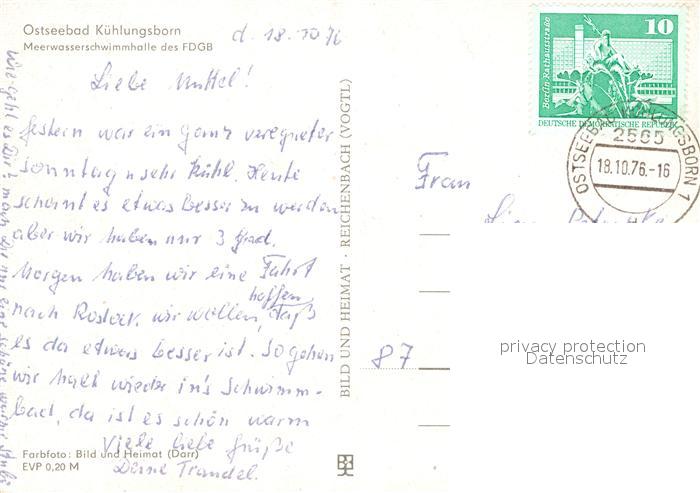 Ostseebad Kühlungsborn
Meerwasserschwimmhalle des FDGB
d. 18.10.76
Liebe Muttel!
Gestern war ein ganz veregneter
Sonntag u sehr kühl. Heute
scheint es etwas besser zu werden
aber wir haben nur 3 Grad.
Morgen haben wir eine Fahrt
nach Rostock. wir wollen hoffen, daß
es da etwas besser ist. So gehen
wir halt wieder in's Schwimm-
bad, da ist es schön warm
Viele liebe Grüße
Deine Traudel.
wie geht es Dir? mach Dir nur eine schöne
Farbfoto: Bild und Heimat (Darr)
EVP 0,20 M
BILD UND HEIMAT · REICHENBACH (VOGTL)
10
Berlin, Rathausstraße
DEUTSCHE DEMOKRATISCHE REPUBLIK
OSTSEEBAD KÜHLUNGSBORN 1
2565
18.10.76.-16
Frau
87
privacy protection
Datenschutz